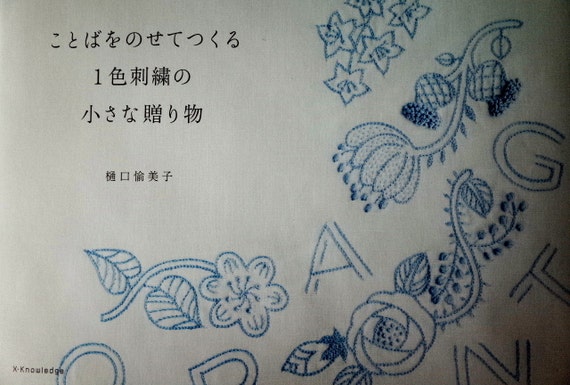 ことばをのせてつくる
1色刺繍の
小さな贈り物
樋口愉美子
G
A
T
O
D
N
X-Knowledge